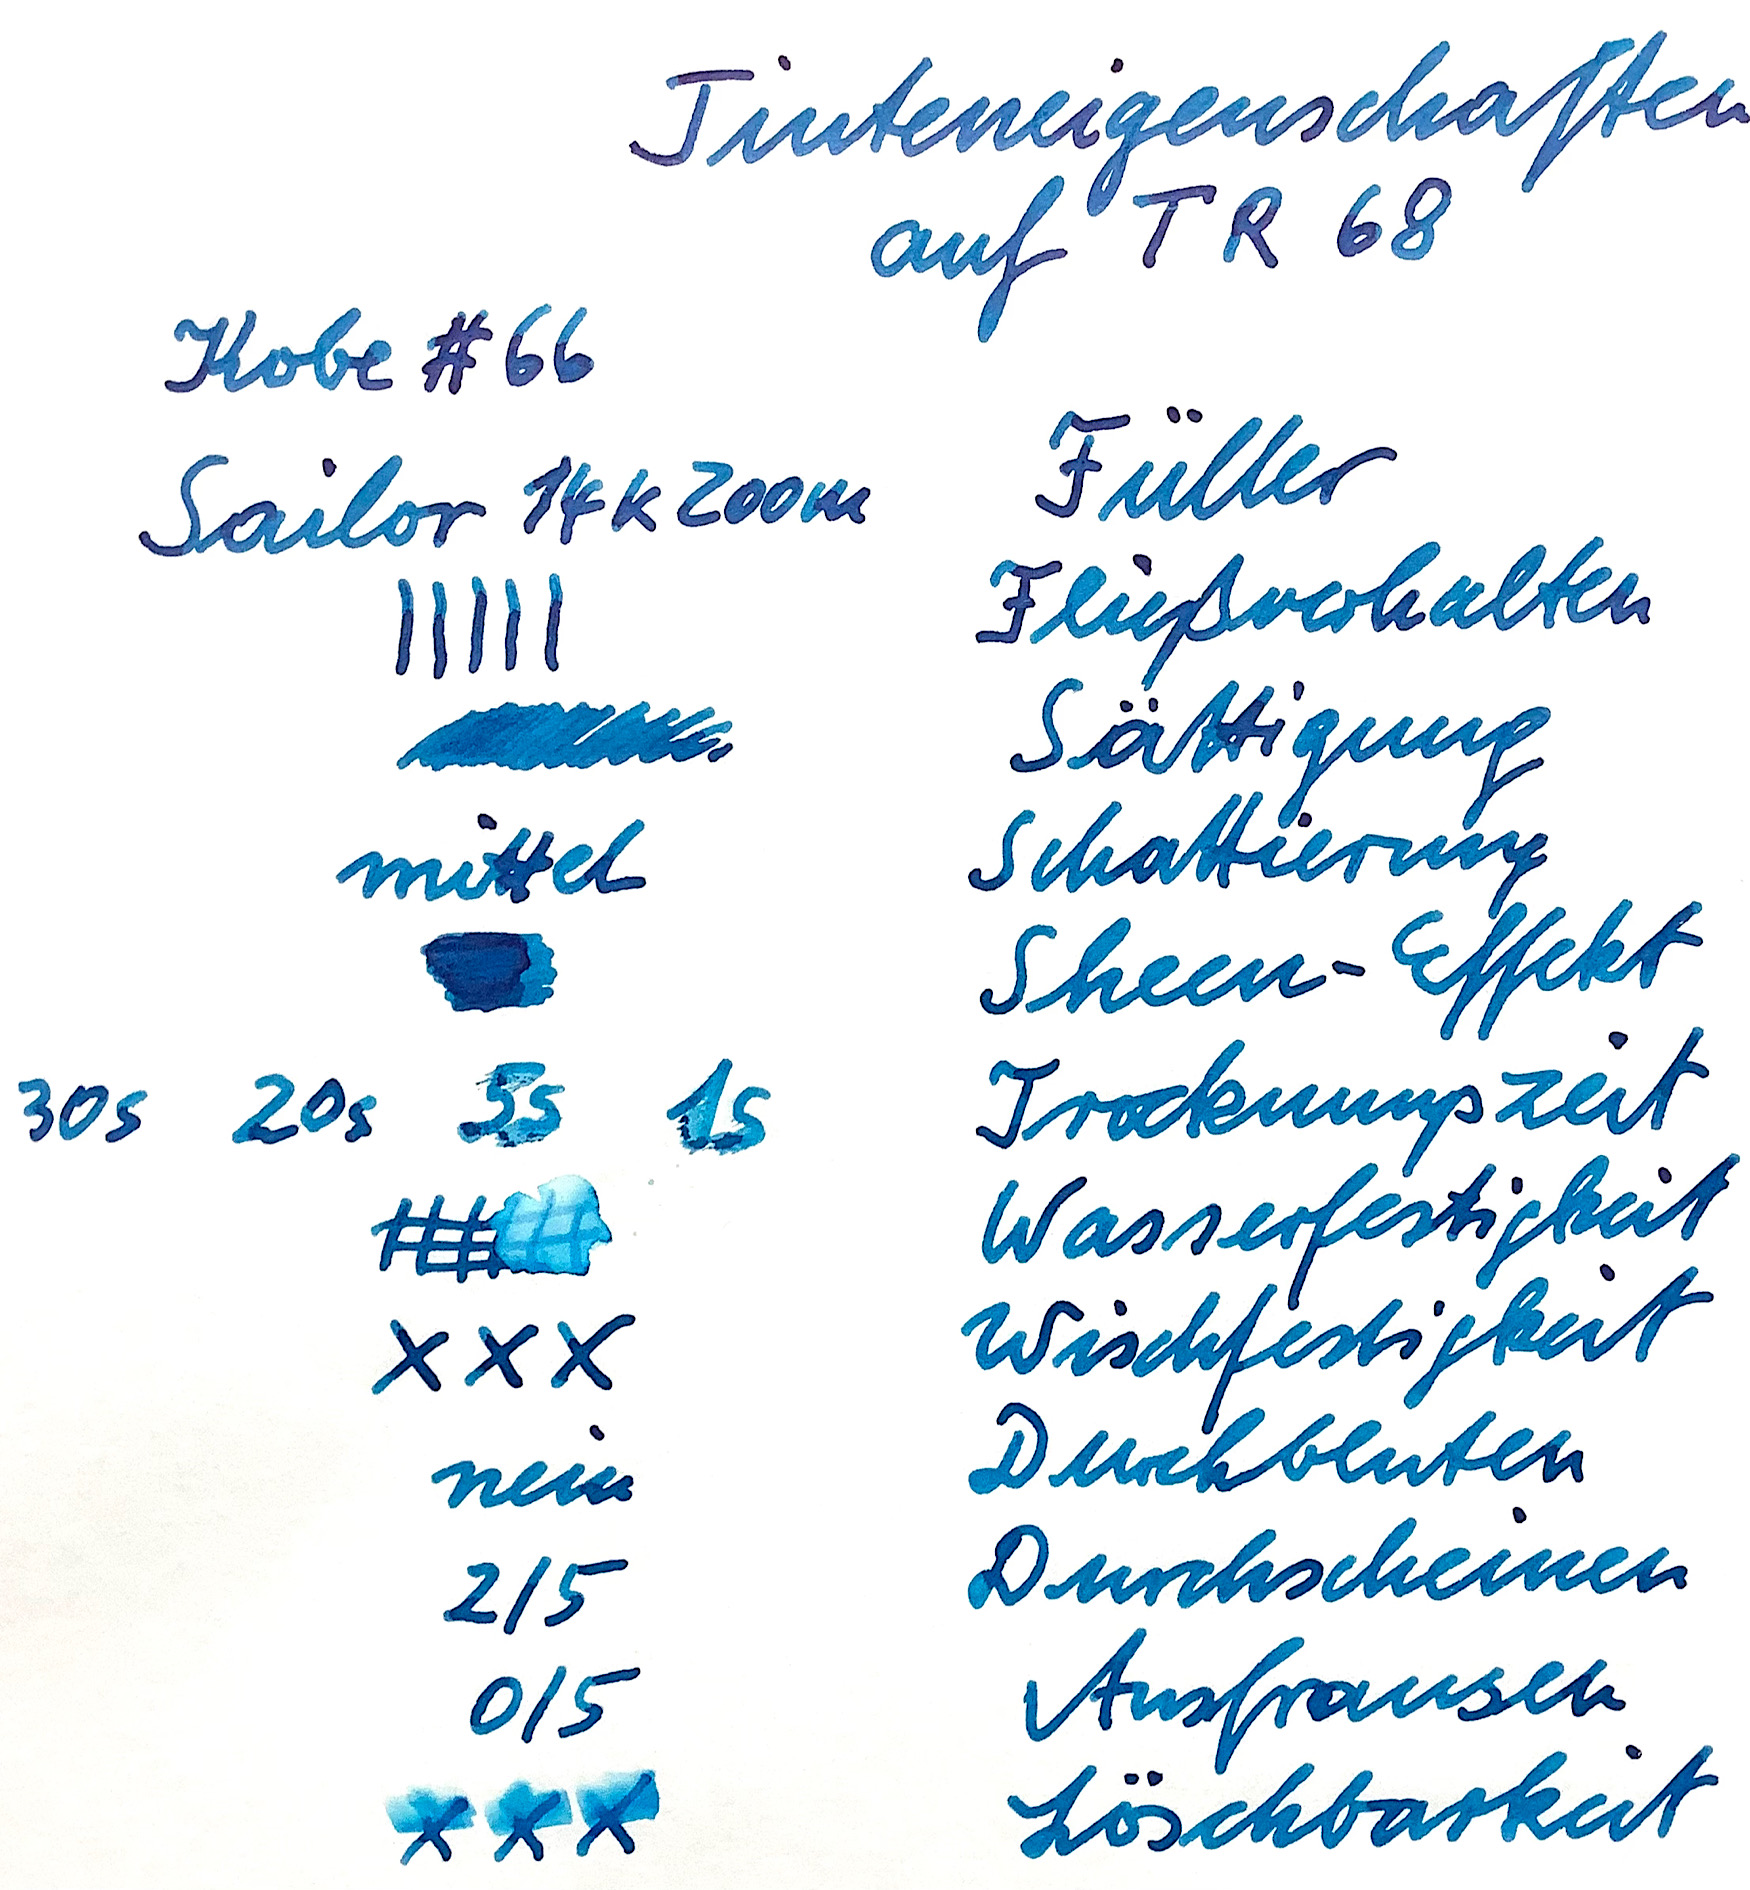 Tinteneigenschaften
auf TR 68
Kobe #66
Sailor 14k Zoom Füller
Fließverhalten
Sättigung
mittel Schattierung
Sheen-Effekt
30s 20s 5s 1s Trocknungszeit
Wasserfestigkeit
XXX Wischfestigkeit
nein Durchbluten
2/5 Durchscheinen
0/5 Ausfransen
XXX Löschbarkeit